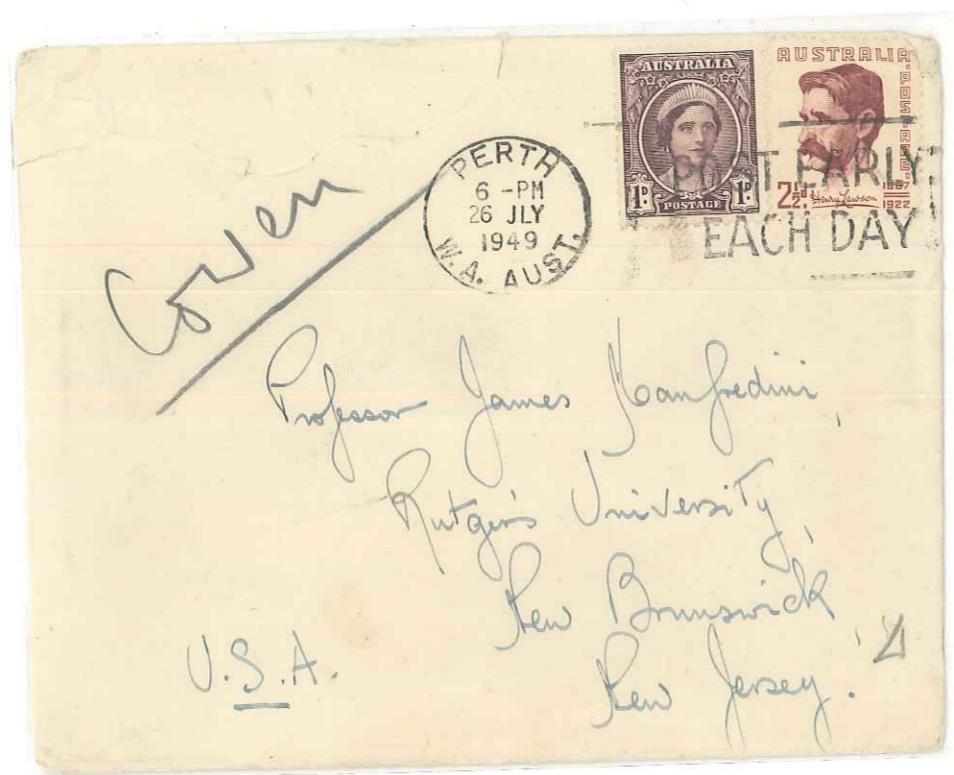 AUSTRALIA
1D 1D
POSTAGE
AUSTRALIA POSTAGE
2½d. Henry Lawson 1867 1922
PERTH
6 -PM
26 JLY
1949
W.A. AUST.
POST EARLY
EACH DAY
Cover
Professor James Manfredini
Rutger's University,
New Brunswick
New Jersey.
U.S.A.